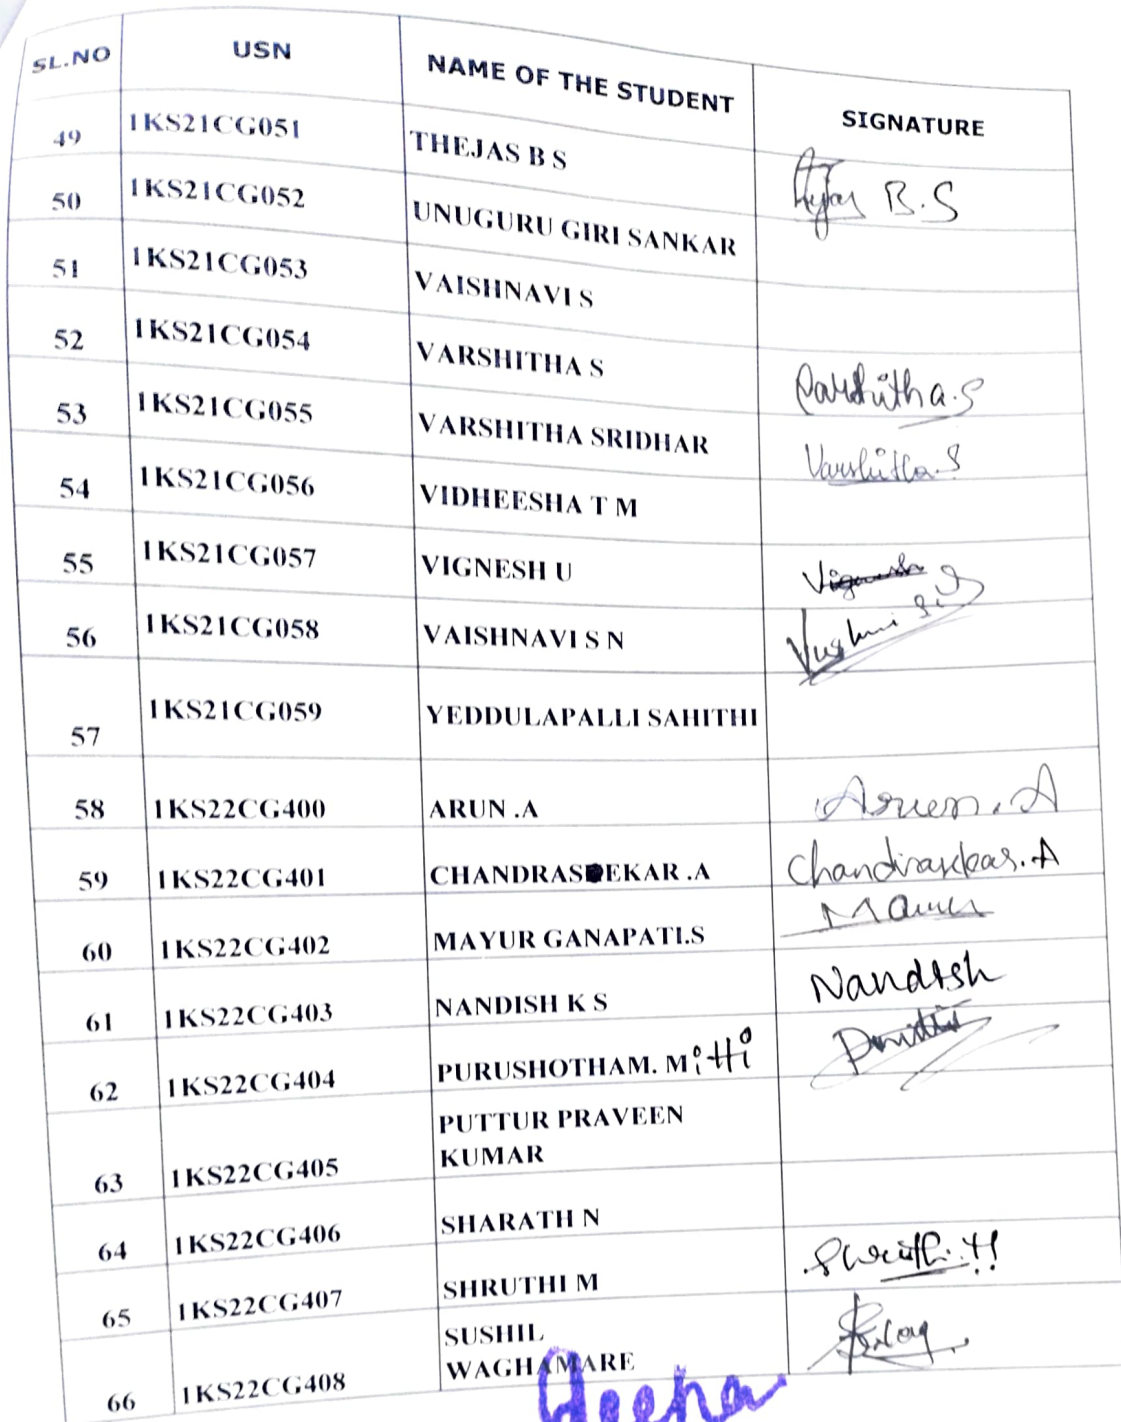 SL.NO USN NAME OF THE STUDENT SIGNATURE
49 1KS21CG051 THEJAS B S B.S
50 1KS21CG052 UNUGURU GIRI SANKAR
51 1KS21CG053 VAISHNAVI S
52 1KS21CG054 VARSHITHA S Varshitha.S
53 1KS21CG055 VARSHITHA SRIDHAR Varshitha.S
54 1KS21CG056 VIDHEESHA T M
55 1KS21CG057 VIGNESH U Vignesh
56 1KS21CG058 VAISHNAVI S N
57 1KS21CG059 YEDDULAPALLI SAHITHI
58 1KS22CG400 ARUN .A Arun.A
59 1KS22CG401 CHANDRAS EKAR .A Chandrasekar.A
60 1KS22CG402 MAYUR GANAPATI.S
61 1KS22CG403 NANDISH K S Nandish
62 1KS22CG404 PURUSHOTHAM. Mitti
63 1KS22CG405 PUTTUR PRAVEEN
KUMAR
64 1KS22CG406 SHARATH N
65 1KS22CG407 SHRUTHI M Shruthi.
66 1KS22CG408 SUSHIL
WAGHAMARE